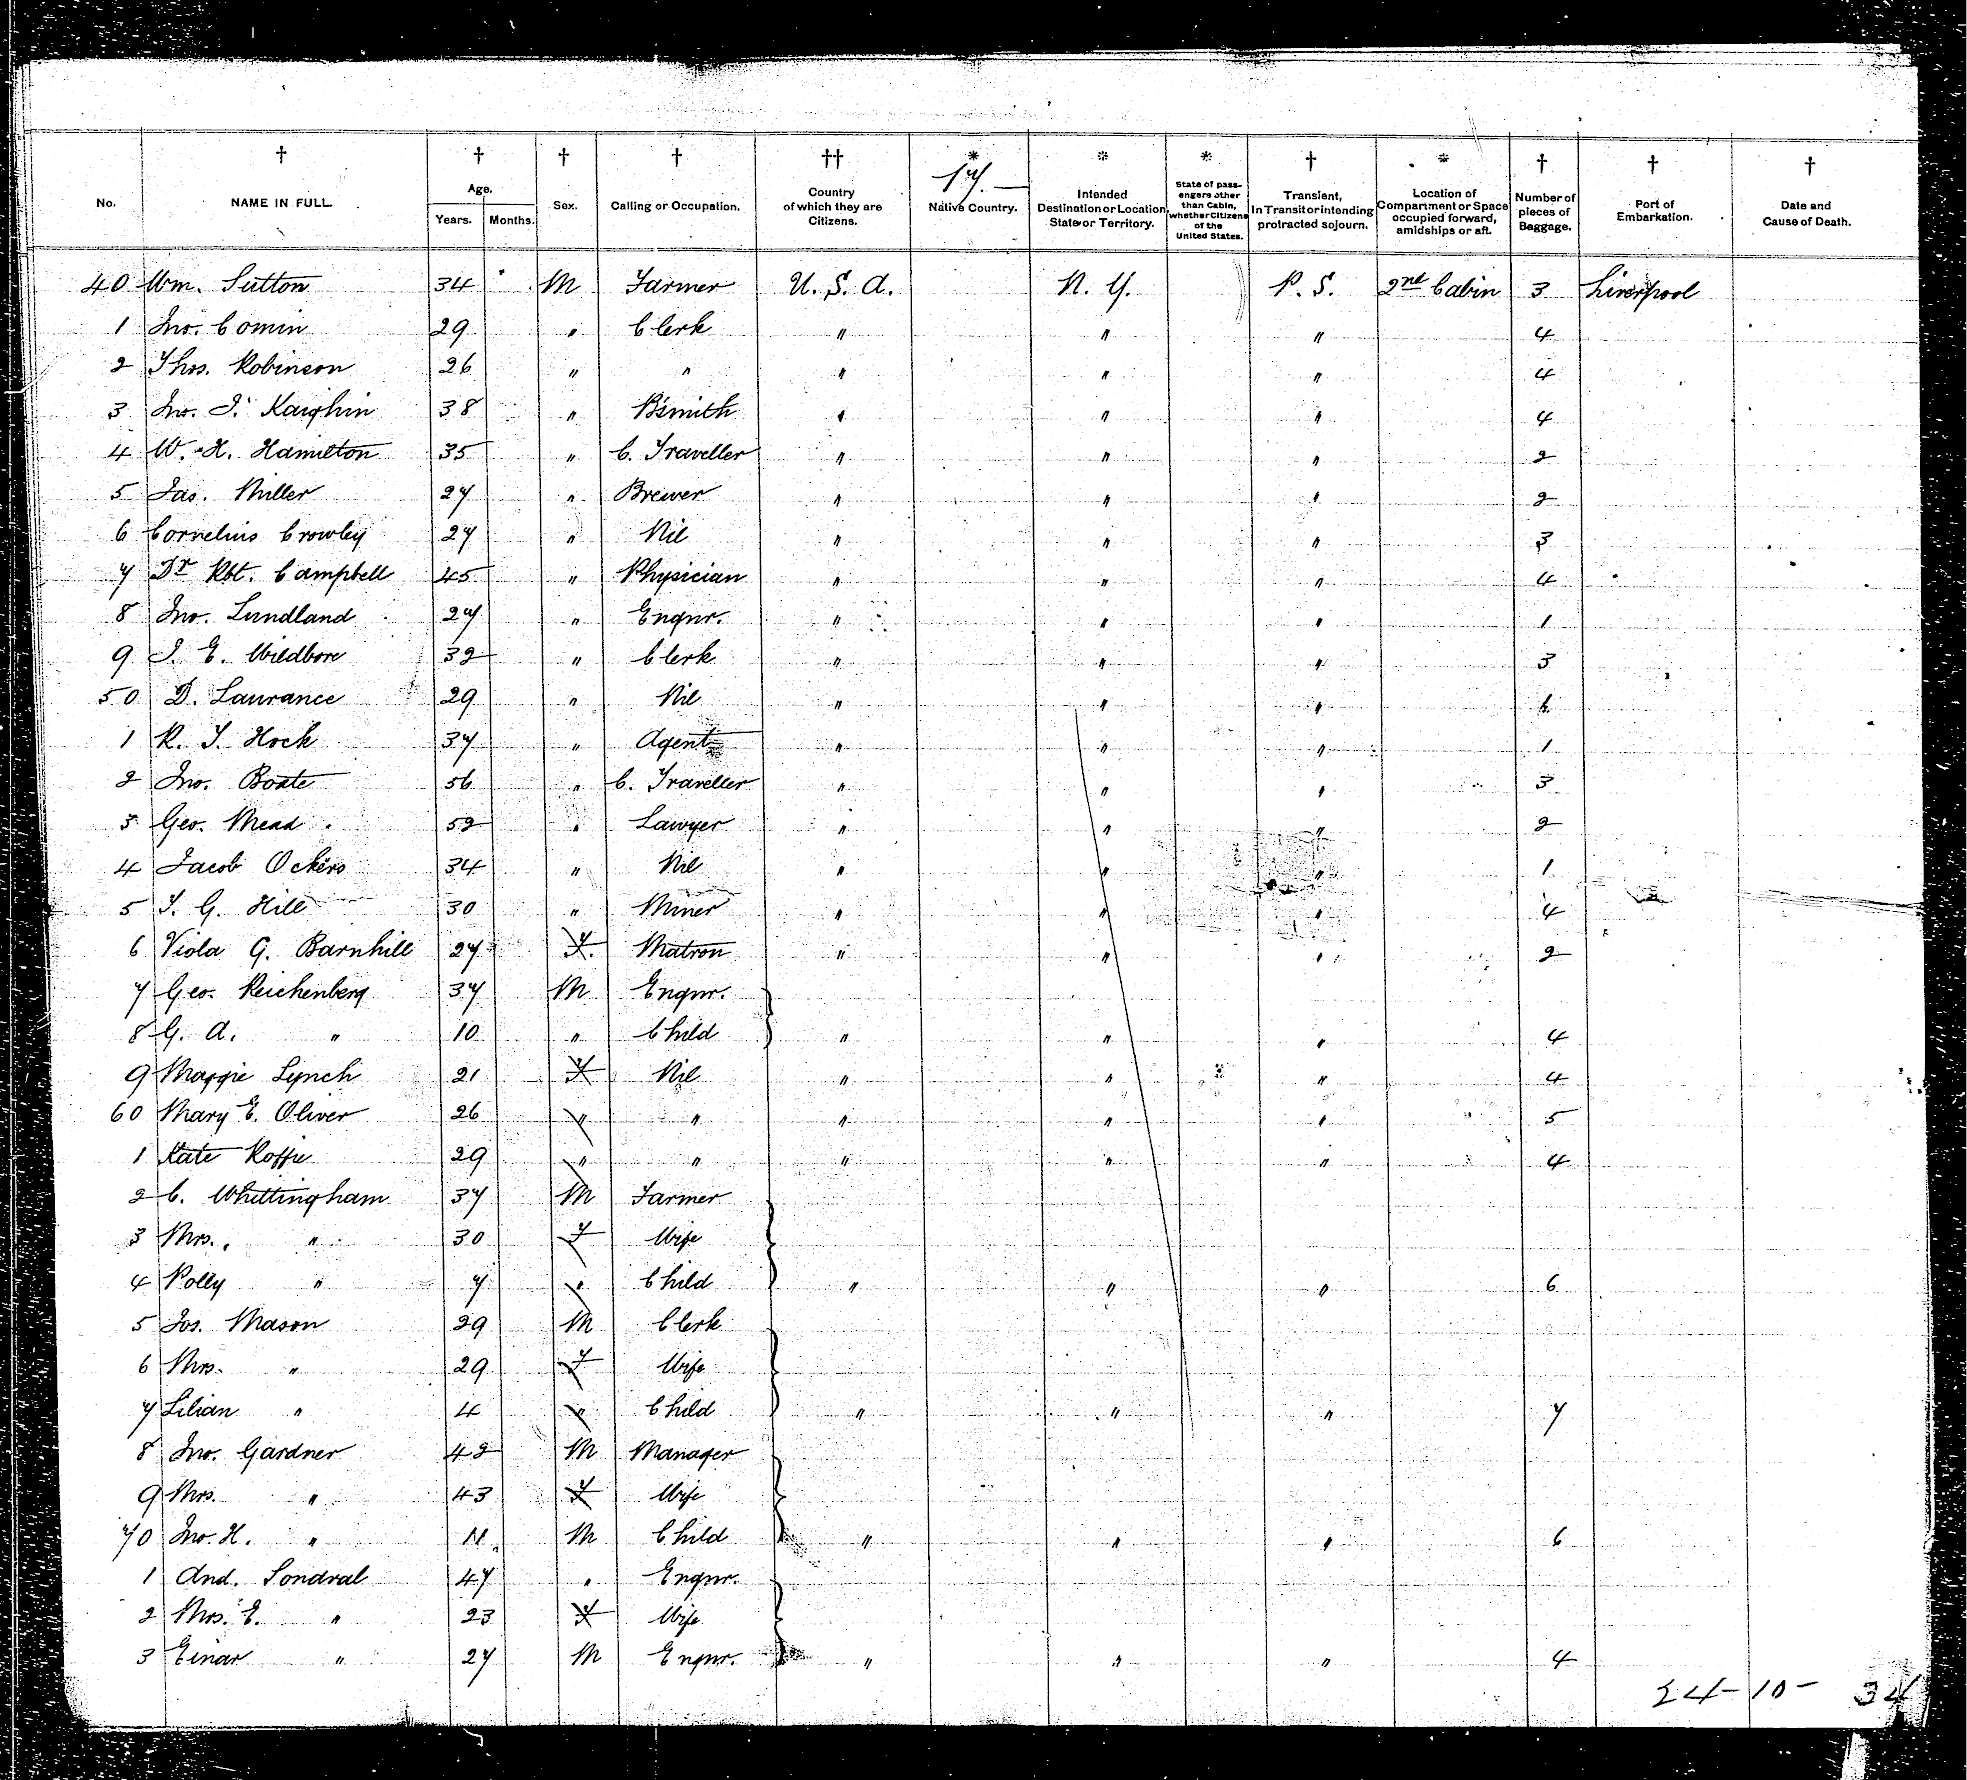 † † † † †† * * * † * † † †
No. NAME IN FULL. Age. Years. Months. Sex. Calling or Occupation. Country of which they are Citizens. Native Country. Intended Destination or Location, State or Territory. State of passengers other than Cabin, whether Citizens of the United States. Transient, In Transit or intending protracted sojourn. Location of Compartment or Space occupied forward, amidships or aft. Number of pieces of Baggage. Port of Embarkation. Date and Cause of Death.
40 Wm. Sutton 34 M Farmer U. S. A. N. Y. P. S. 2nd Cabin 3 Liverpool
1 Jno. Comin 29 " Clerk " " " 4
2 Thos. Robinson 26 " " " " " 4
3 Jno. J. Kaighin 38 " B'smith " " " 4
4 W. H. Hamilton 35 " C. Traveller " " " 2
5 Jas. Miller 27 " Brewer " " " 2
6 Cornelius Crowley 27 " Nil " " " 3
7 Dr Rbt. Campbell 45 " Physician " " " 4
8 Jno. Lundland 27 " Engnr. " " " 1
9 J. E. Wildbore 32 " Clerk " " " 3
50 D. Laurance 29 " Nil " " "
1 R. T. Hock 37 " Agent " " " 1
2 Jno. Boate 56 " C. Traveller " " " 3
3 Geo. Mead 52 " Lawyer " " " 2
4 Jacob Ockers 34 " Nil " " " 1
5 T. G. Hill 30 " Miner " " " 4
6 Viola G. Barnhill 27 F Matron " " " 2
7 Geo. Reichenberg 37 M Engnr.
8 G. A. " 10 " Child " " " 4
9 Maggie Lynch 21 F Nil " " " 4
60 Mary E. Oliver 26 " " " " " 5
1 Kate Roffie 29 " " " " " 4
2 C. Whittingham 37 M Farmer
3 Mrs. " 30 F Wife
4 Polly " 7 " Child " " " 6
5 Jos. Mason 29 M Clerk
6 Mrs. " 29 F Wife
7 Lilian " 4 " Child " " " 7
8 Jno. Gardner 42 M Manager
9 Mrs. " 43 F Wife
70 Jno. H. " 11 M Child " " " 6
1 And. Sondval 47 " Engnr.
2 Mrs. E. " 23 F Wife
3 Einar " 27 M Engnr. " " " 4
24-10- 34